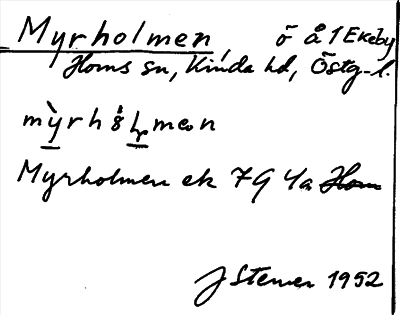 Myrholmen, ö å 1 Ekeby
Horns sn, Kinda hd, Östg-l.
Myrholmen ek 7G 4a Horn
J Stenen 1952